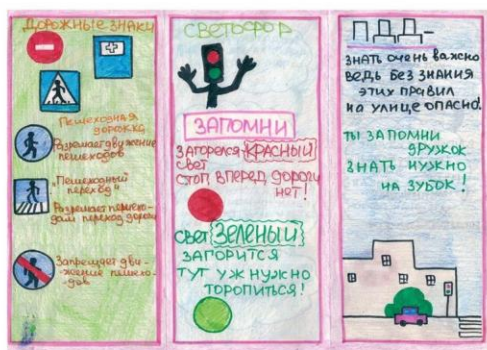 ДОРОЖНЫЕ ЗНАКИ
Пешеходная
дорожка
Разрешает движение
пешеходов
"Пешеходный
переход"
Разрешает пешехо-
дам переход дороги
Запрещает дви-
жение пешехо-
дов
СВЕТОФОР
ЗАПОМНИ
ЗАГОРЕЛСЯ КРАСНЫЙ
СВЕТ
СТОП, ВПЕРЕД ДОРОГИ
НЕТ!
СВЕТ ЗЕЛЕНЫЙ
ЗАГОРИТСЯ
ТУТ УЖ НУЖНО
ТОРОПИТЬСЯ!
ПДД-
ЗНАТЬ ОЧЕНЬ ВАЖНО
ВЕДЬ БЕЗ ЗНАНИЯ
ЭТИХ ПРАВИЛ
НА УЛИЦЕ ОПАСНО.
ТЫ ЗАПОМНИ
ДРУЖОК
ЗНАТЬ НУЖНО
НА ЗУБОК!